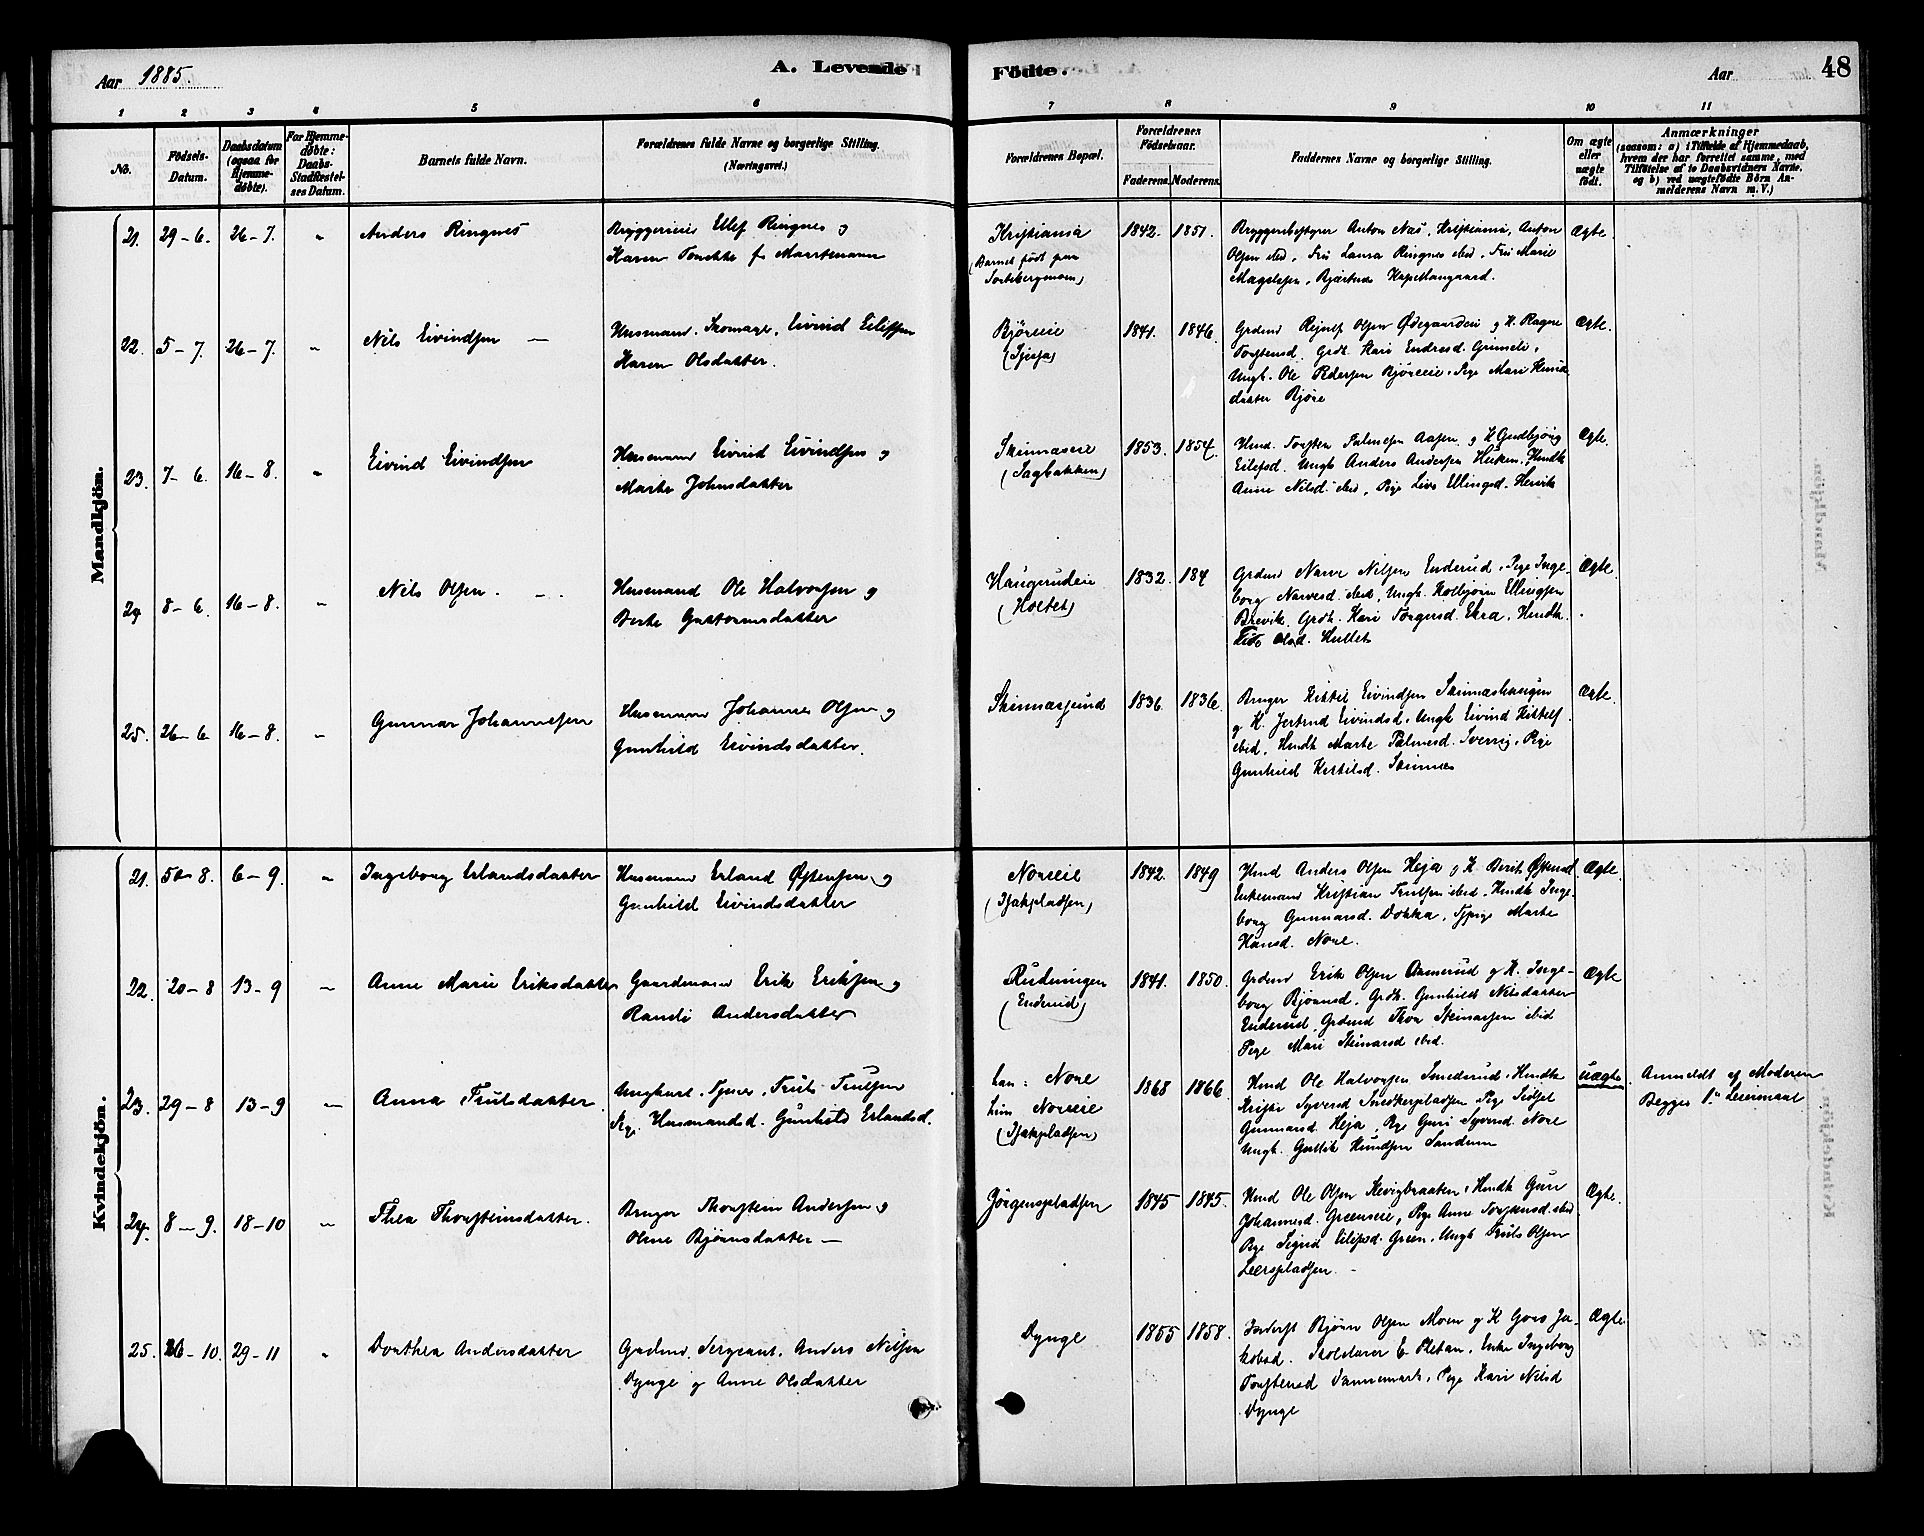 Aar 1885.
A. Levende
Fødte.
Aar
48
1 2 3 4 5 6 7 8 9 10 11
No.
Fødsels-
Datum.
Daabsdatum
(ogsaa for
Hjemme-
døbte).
For Hjemme-
døbte:
Daabs-
Stadfæstel-
ses Datum.
Barnets fulde Navn.
Forældrenes fulde Navne og borgerlige Stilling.
(Næringsvei.)
Forældrenes Bopæl.
Forældrenes
Fødselsaar.
Faderens.
Moderens.
Faddernes Navne og borgerlige Stilling.
Om ægte
eller
uægte
født.
Anmærkninger
(saasom: a) i Tilfælde af Hjemmedaab,
hvem der har forrettet samme, med
Tilføielse af to Daabsvidners Navne,
og b) ved uægtefødte Børn An-
melderens Navn m. V.)
Mandkjön.
21. 29-6. 26-7. " Anders Ringnes
Bryggerieier Ellef Ringnes og
Karen f.
Kristiania
(Barnet født paa
1842. 1851.
Bryggeribestyrer Anton Næs, Kristiania, Anton
Olsen ibid, Fru Laura Ringnes ibid, Fru Marie
Magelssen, Kapellangaard.
Ægte.
22. 5-7. 26-7. " Nils Eivindsen —
Husmand. Skomager, Eivind Eilifsen
Karen Olsdatter.
Björeeie
1841. 1846.
Grdmd Olsen Ødegaarden og K. Ragne
Torstensd. Grdk. Kari Endresd. Grimeli,
Ungk. Ole Pedersen Björeeie, Pige Mari
datter Björe
Ægte.
23. 7-6. 16-8. " Eivind Eivindsen
Husmand Eivind Eivindsen og
Marte Johnsdatter
Skinnæseie
(Sagbakken)
1853. 1854.
Hmd. Torsten Palmesen Aasen og K Gudbjörg
Eilefsd. Ungk Anders Andersen Hmdk
Anne Nilsd. ibid, Pige Liv Ellingsd.
Ægte.
24 8-6. 16-8. " Nils Olsen. — —
Husmand Ole Halvorsen og
Berte Guttormsdatter
Haugerudeie
(Holtet)
1832. 184
Grdmd Narve Nilsen Enderud, Pige Inge-
borg Narvesd. ibid, Ungk. Kolbjörn Ellingsen
Brevik. Grdk. Kari Torgersd. Ekra, Hmdk.
Olsd. Holtet
Ægte.
25. 26-6 16-8. " Gunnar Johannesen
Husmand Johannes Olsen og
Gunhild Eivindsdatter.
1836. 1836.
Bruger Kittil Eivindsen Skinneshaugen
og K. Jertrud Eivindsd. Ungk Eivind Kittels.
ibid, Hmdk Marte Palmesd. Pige
Gunhild Kittilsd. Skinnes
Ægte.
Kvindekjön.
21. 8. 6-9. " Ingeborg Erlandsdatter
Husmand Erland Østensen og
Gunhild Eivindsdatter
Noreeie
(Isakpladsen)
1842. 1849
Hmd Anders Olsen Heja og K Berit
Enkemand Kristian Trulsen ibid, Hmdk Inge-
borg Gunnarsd. Dokka, Tjpige Marte
Hansd. Nore.
Ægte.
22. 20-8 13-9 — Anne Marie Eriksdatter
Gaardmand Erik Eriksen og
Randi Andersdatter
Rudningen
(Enderud)
1841. 1850.
Grdmd Erik Olsen Aamerud og K. Inge-
borg Bjömsd. Grdk. Gunhild Nilsdatter
Enderud, Grdmd Thor Steinarsen ibid
Pige Mari Steinarsd ibid.
Ægte
23. 29-8 13-9 — Anna Trulsdatter
Ungkarl. Tjener, Truls Trulsen
Pige. Husmandsd. Gunhild Erlandsd.
han: Nore
hun Noreeie
(Isakpladsen)
1868 1866
Hmd Ole Halvorsen Smederud, Hmdk
Kristi Syversd. Snedkerpladsen Pige Sidsel
Gunnarsd Heja, Pige Guri Syversd. Nore
Ungk. Gullik Knudsen Sandum
uægte.
Anmeldt af Moderen
Begges 1ste Leiermaal
24. 8-9. 18-10 " Thea Thorsteinsdatter.
Bruger Thorstein Andersen og
Olene Bjömsdatter —
Jörgenspladsen
1845 1845.
Hmd Ole Olsen Kevigbraaten, Hmdk Guri
Johannesd. Greenseie, Pige Anne Torstensd. ibid
Pige Sigrid Eilifsd. Green, Ungk Truls Olsen
Leerspladsen. —
Ægte.
25. 26-10. 29-11 " Dorthea Andersdatter
Gaardmd, Sergeant, Anders Nilsen
Dynge og Anne Olsdatter
Dynge
1855 1858.
Björn Olsen Moen og K Goro Ja-
kobsd. Skolelærer E Pletan, Enke Ingeborg
Torstensd Dannemark, Pige Kari Nilsd
Dynge
Ægte